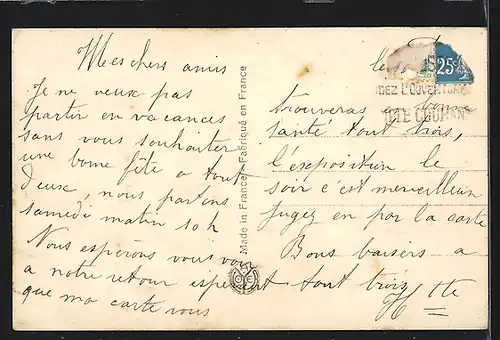 Mes chers amis
Je ne veux pas
partir en vacances
sans vous souhaiter
une bonne fête a tout
deux, nous partons
samedi matin 10 h
Nous esperons vous voir
a notre retour esperant
que ma carte vous
Made in France - Fabriqué en France
le
25c
L'OUVERTURE
trouveras bon
santé tout trois,
l'exposition le
soir c'est merveilleux
jugez en par la carte
Bons baisers a
tout trois